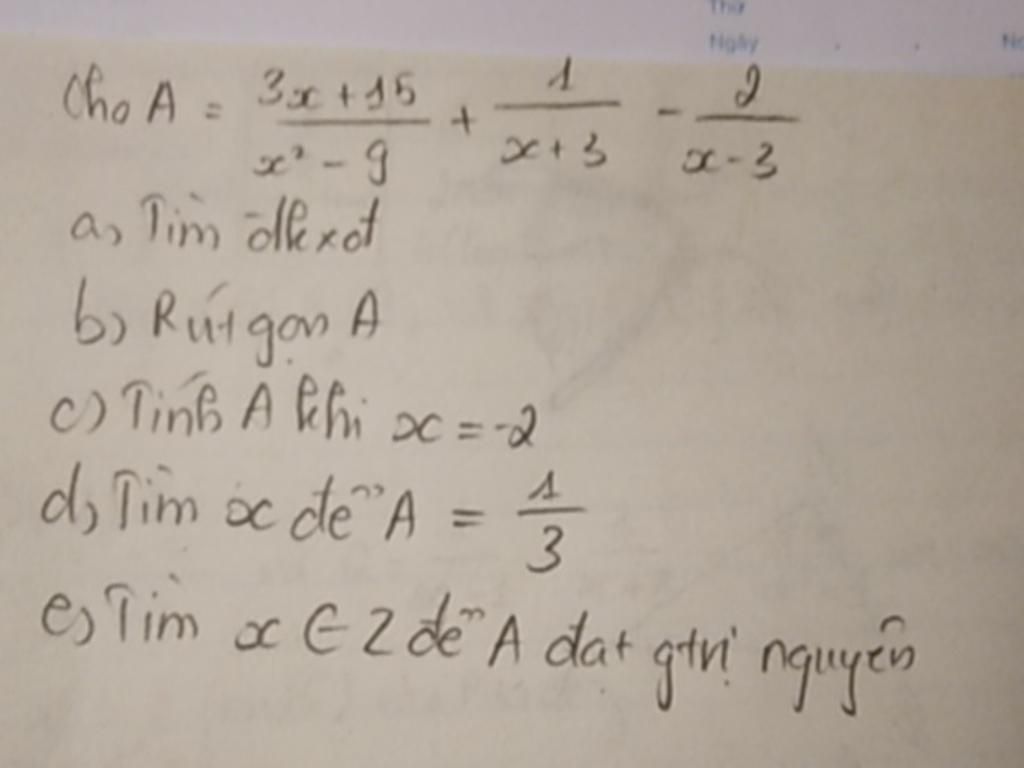 Thứ
Ngày
Cho A = \frac{3x+15}{x²-9} + \frac{1}{x+3} - \frac{2}{x-3}
a, Tìm đkxđ
b) Rút gọn A
c) Tính A khi x = -2
d, Tìm x để A = \frac{1}{3}
e, Tìm x ∈ Z để A đạt gtrị nguyên